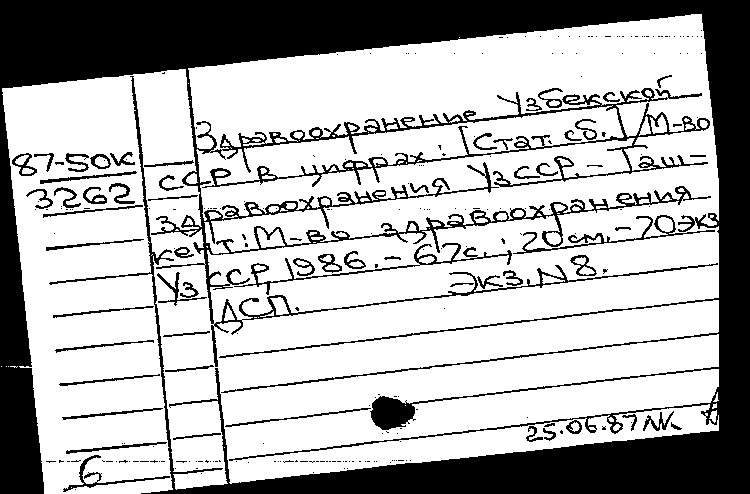 Здравоохранение Узбекской
87-50к
3262
ССР в цифрах: [Стат. сб.] / М-во
здравоохранения УзССР. – Таш-
кент: М-во здравоохранения
УзССР, 1986. – 67с.; 20см. – 70экз
ДСП. Экз. N8.
25.06.87
6